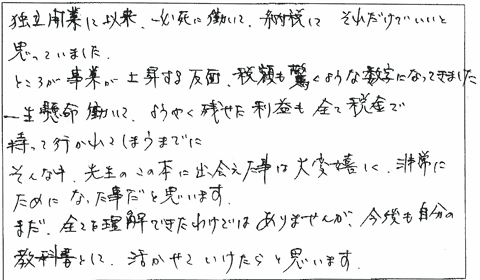 独立開業に以来、必死に働いて、納税して それだけでいいと
思っていました。
ところが事業が上昇する反面、税額も驚くような数字になってきました
一生懸命働いて、ようやく残せた利益も全て税金で
持って行かれてしまうまでに
そんな中、先生のこの本に出会えた事は大変嬉しく、非常に
ためになった事だと思います。
まだ、全てを理解できたわけではありませんが、今後も自分の
教科書として、活かせていけたらと思います。